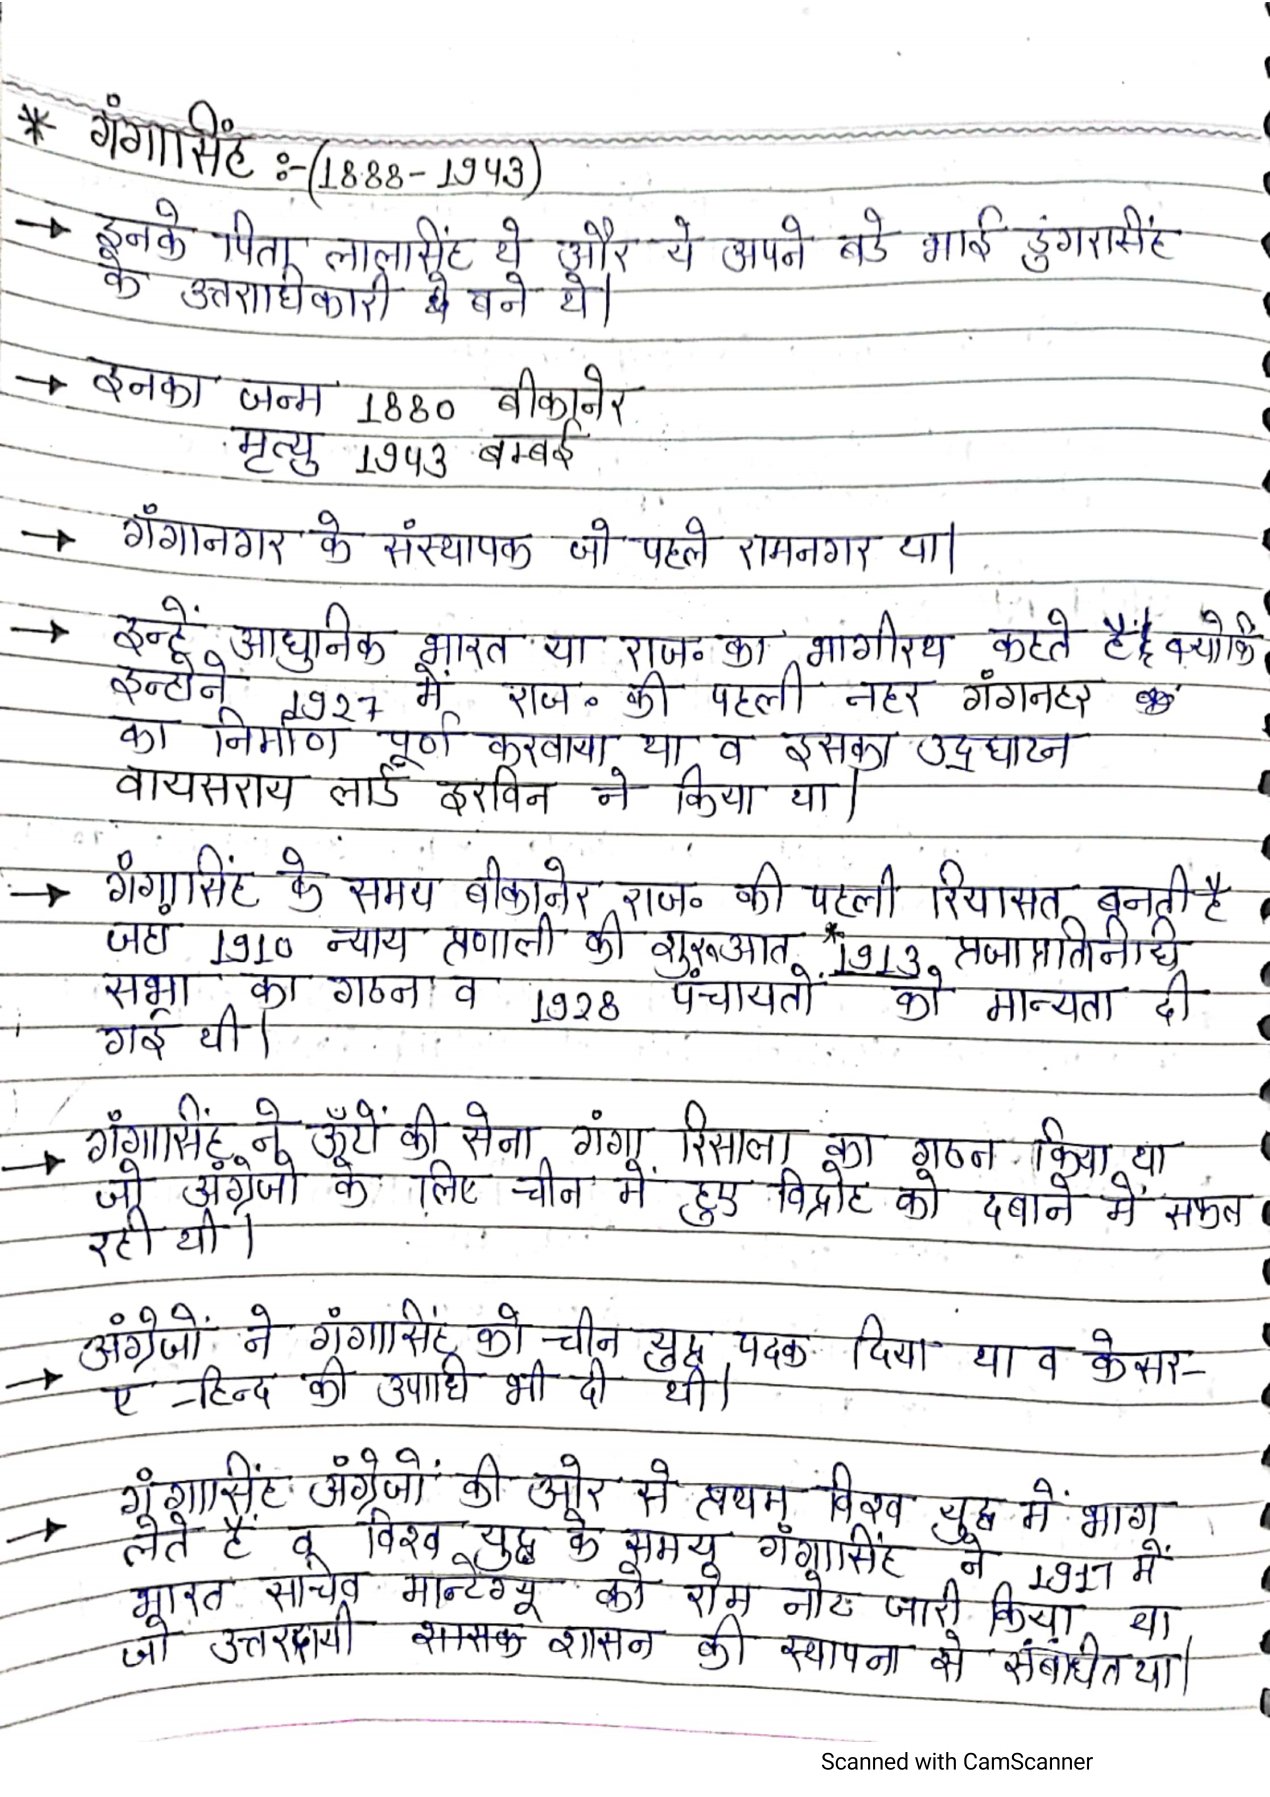 * गंगासिंह :-(1888-1943)
→ इनके पिता लालसिंह थे और ये अपने बडे भाई डुंगरसिंह
के उत्तराधिकारी बने थे।
→ इनका जन्म 1880 बीकानेर
मृत्यु 1943 बम्बई
→ गंगानगर के संस्थापक जो पहले रामनगर था।
→ इन्हें आधुनिक भारत या राज॰ का भागीरथ कहते हैं क्योकि
इन्होने 1927 में राज॰ की पहली नहर गंगनहर
का निर्माण पूर्ण करवाया था व इसका उद्घाटन
वायसराय लार्ड इरविन ने किया था।
→ गंगासिंह के समय बीकानेर राज॰ की पहली रियासत बनती है
जहां 1910 न्याय प्रणाली की शुरूआत *1913 प्रजाप्रतिनीधि
सभा का गठन व 1928 पंचायतों को मान्यता दी
गई थी।
→ गंगासिंह ने ऊँटों की सेना गंगा रिसाला का गठन किया था
जो अंग्रेजो के लिए चीन में हुए विद्रोह को दबाने में सफल
रही थी।
→ अंग्रेजों ने गंगासिंह को चीन युद्ध पदक दिया था व केसर-
ए-हिन्द की उपाधि भी दी थी।
→ गंगासिंह अंग्रेजों की ओर से प्रथम विश्व युद्ध में भाग
लेते हैं व विश्व युद्ध के समय गंगासिंह ने 1917 में
भारत सचिव मान्टेग्यू को रोम नोट जारी किया था
जो उत्तरदायी शासन की स्थापना से संबंधित था।
Scanned with CamScanner